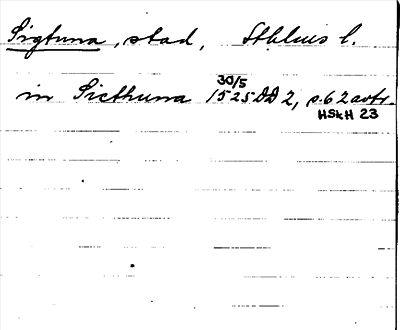 Sigtuna, stad, Sthlms l.
in Sicthuna 30/5 1525 DD 2, s. 62 avtr.
HSkH 23